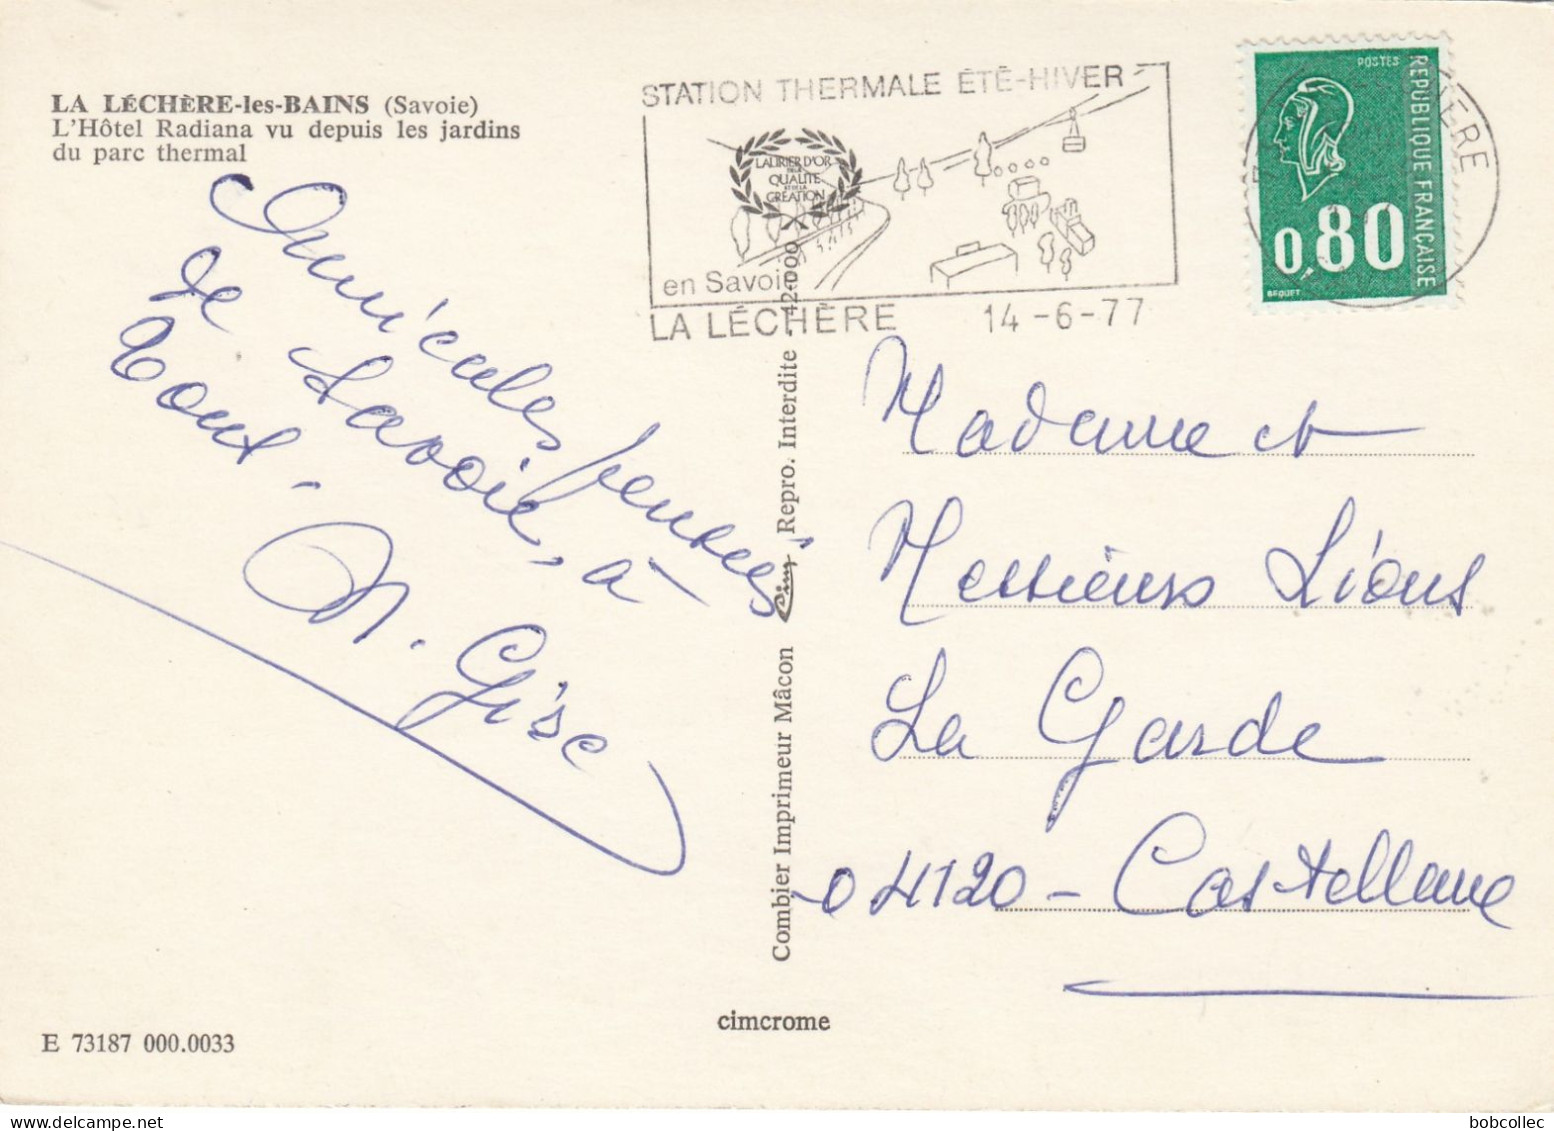 LA LÉCHÈRE-les-BAINS (Savoie)
L'Hôtel Radiana vu depuis les jardins
du parc thermal
STATION THERMALE ÉTÉ-HIVER
LAURIER D'OR
DE LA
QUALITE
ET DE LA
CRÉATION
en Savoie
LA LÉCHÈRE 14-6-77
POSTES
REPUBLIQUE FRANÇAISE
0,80
BEQUET
Amicales pensées
de Savoie, à
tous.
M. Gise
Combier Imprimeur Mâcon Cim Repro. Interdite 42.000
Madame et
Messieurs Lions
La Garde
04120 - Castellane
cimcrome
E 73187 000.0033
bobcollec